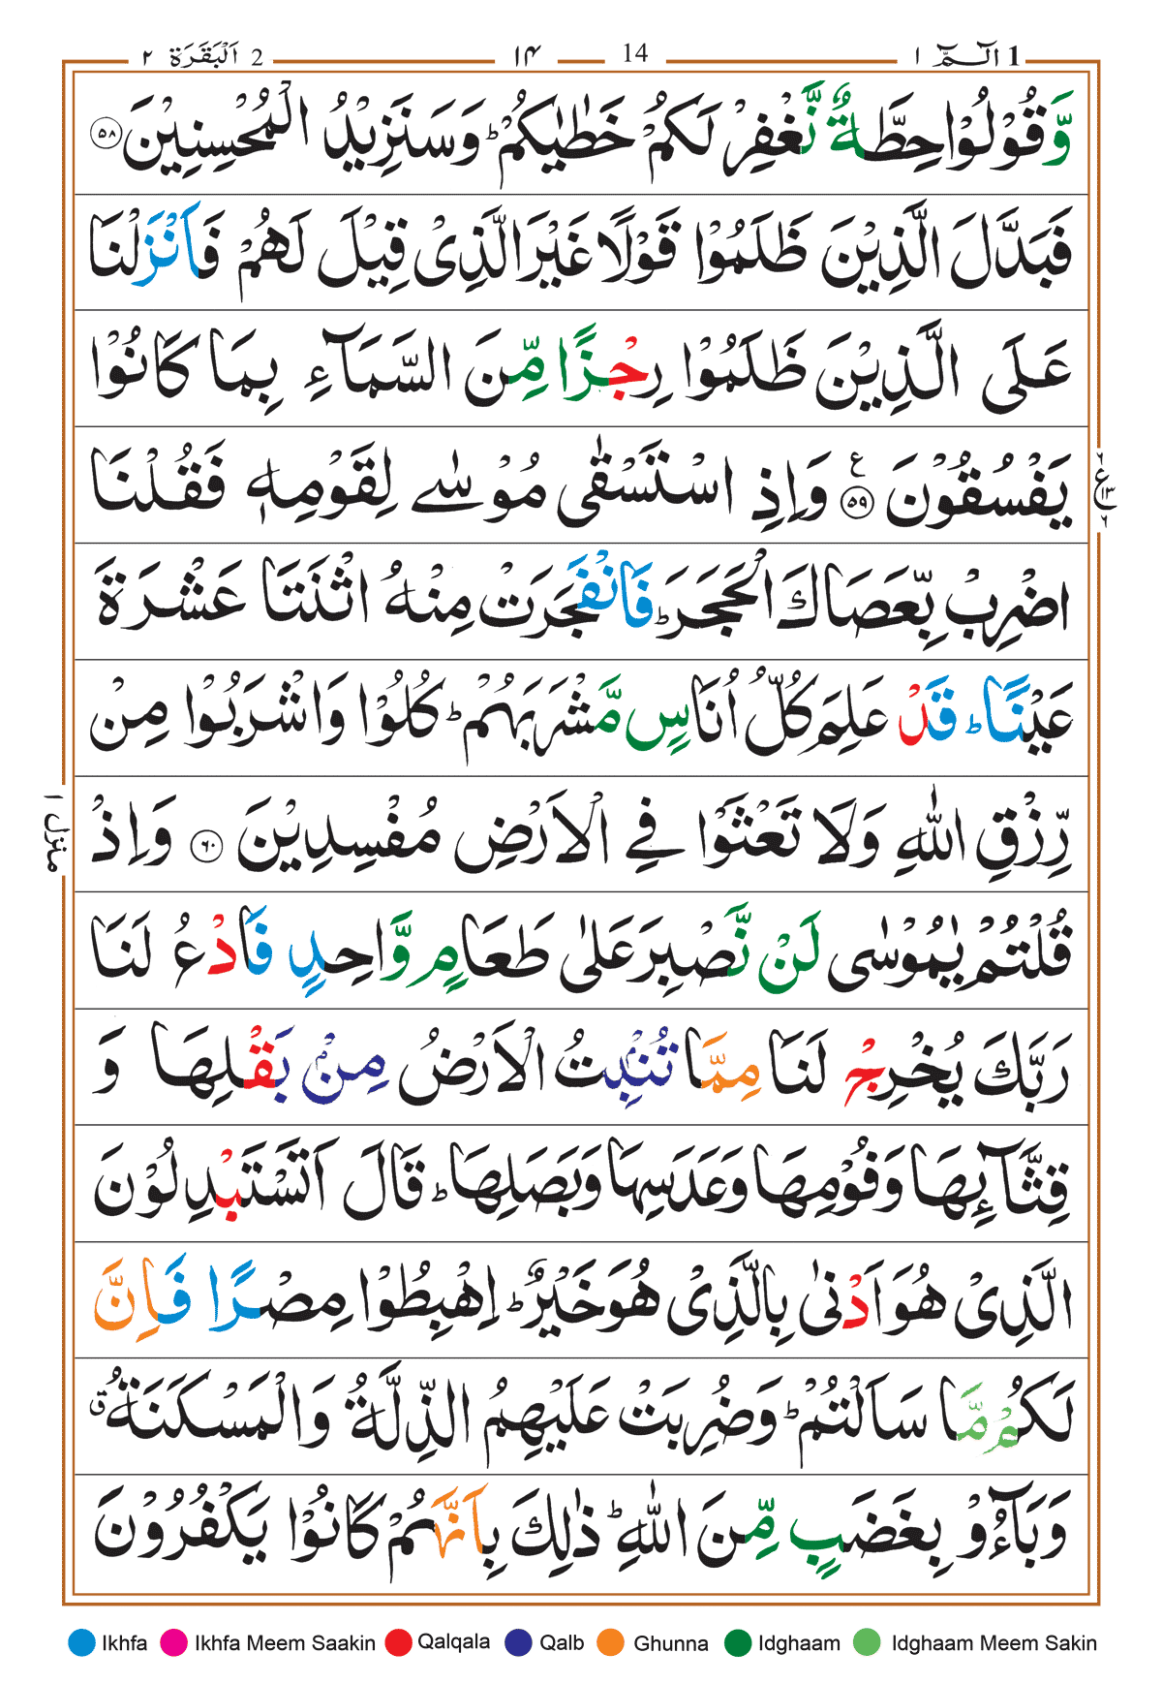 1 الٓمّٓ ١ 14 ١٤ 2 اَلْبَقَرَة ٢
وَّقُوْلُوْا حِطَّةٌ نَّغْفِرْ لَكُمْ خَطٰيٰكُمْ ؕ وَسَنَزِيْدُ الْمُحْسِنِيْنَ ۝٥٨
فَبَدَّلَ الَّذِيْنَ ظَلَمُوْا قَوْلًا غَيْرَ الَّذِىْ قِيْلَ لَهُمْ فَاَنْزَلْنَا
عَلَى الَّذِيْنَ ظَلَمُوْا رِجْزًا مِّنَ السَّمَآءِ بِمَا كَانُوْا
يَفْسُقُوْنَ ۝٥٩ ع وَاِذِ اسْتَسْقٰى مُوْسٰى لِقَوْمِهٖ فَقُلْنَا
اضْرِبْ بِّعَصَاكَ الْحَجَرَ ؕ فَانْفَجَرَتْ مِنْهُ اثْنَتَا عَشْرَةَ
عَيْنًا ؕ قَدْ عَلِمَ كُلُّ اُنَاسٍ مَّشْرَبَهُمْ ؕ كُلُوْا وَاشْرَبُوْا مِنْ
رِّزْقِ اللّٰهِ وَلَا تَعْثَوْا فِى الْاَرْضِ مُفْسِدِيْنَ ۝٦٠ وَاِذْ
منزل ١
قُلْتُمْ يٰمُوْسٰى لَنْ نَّصْبِرَ عَلٰى طَعَامٍ وَّاحِدٍ فَادْعُ لَنَا
رَبَّكَ يُخْرِجْ لَنَا مِمَّا تُنْۢبِتُ الْاَرْضُ مِنْۢ بَقْلِهَا وَ
قِثَّآئِهَا وَفُوْمِهَا وَعَدَسِهَا وَبَصَلِهَا ؕ قَالَ اَتَسْتَبْدِلُوْنَ
الَّذِىْ هُوَ اَدْنٰى بِالَّذِىْ هُوَ خَيْرٌ ؕ اِهْبِطُوْا مِصْرًا فَاِنَّ
لَكُمْ مَّا سَاَلْتُمْ ؕ وَضُرِبَتْ عَلَيْهِمُ الذِّلَّةُ وَالْمَسْكَنَةُ ۗ
وَبَآءُوْ بِغَضَبٍ مِّنَ اللّٰهِ ؕ ذٰلِكَ بِاَنَّهُمْ كَانُوْا يَكْفُرُوْنَ
Ikhfa Ikhfa Meem Saakin Qalqala Qalb Ghunna Idghaam Idghaam Meem Sakin